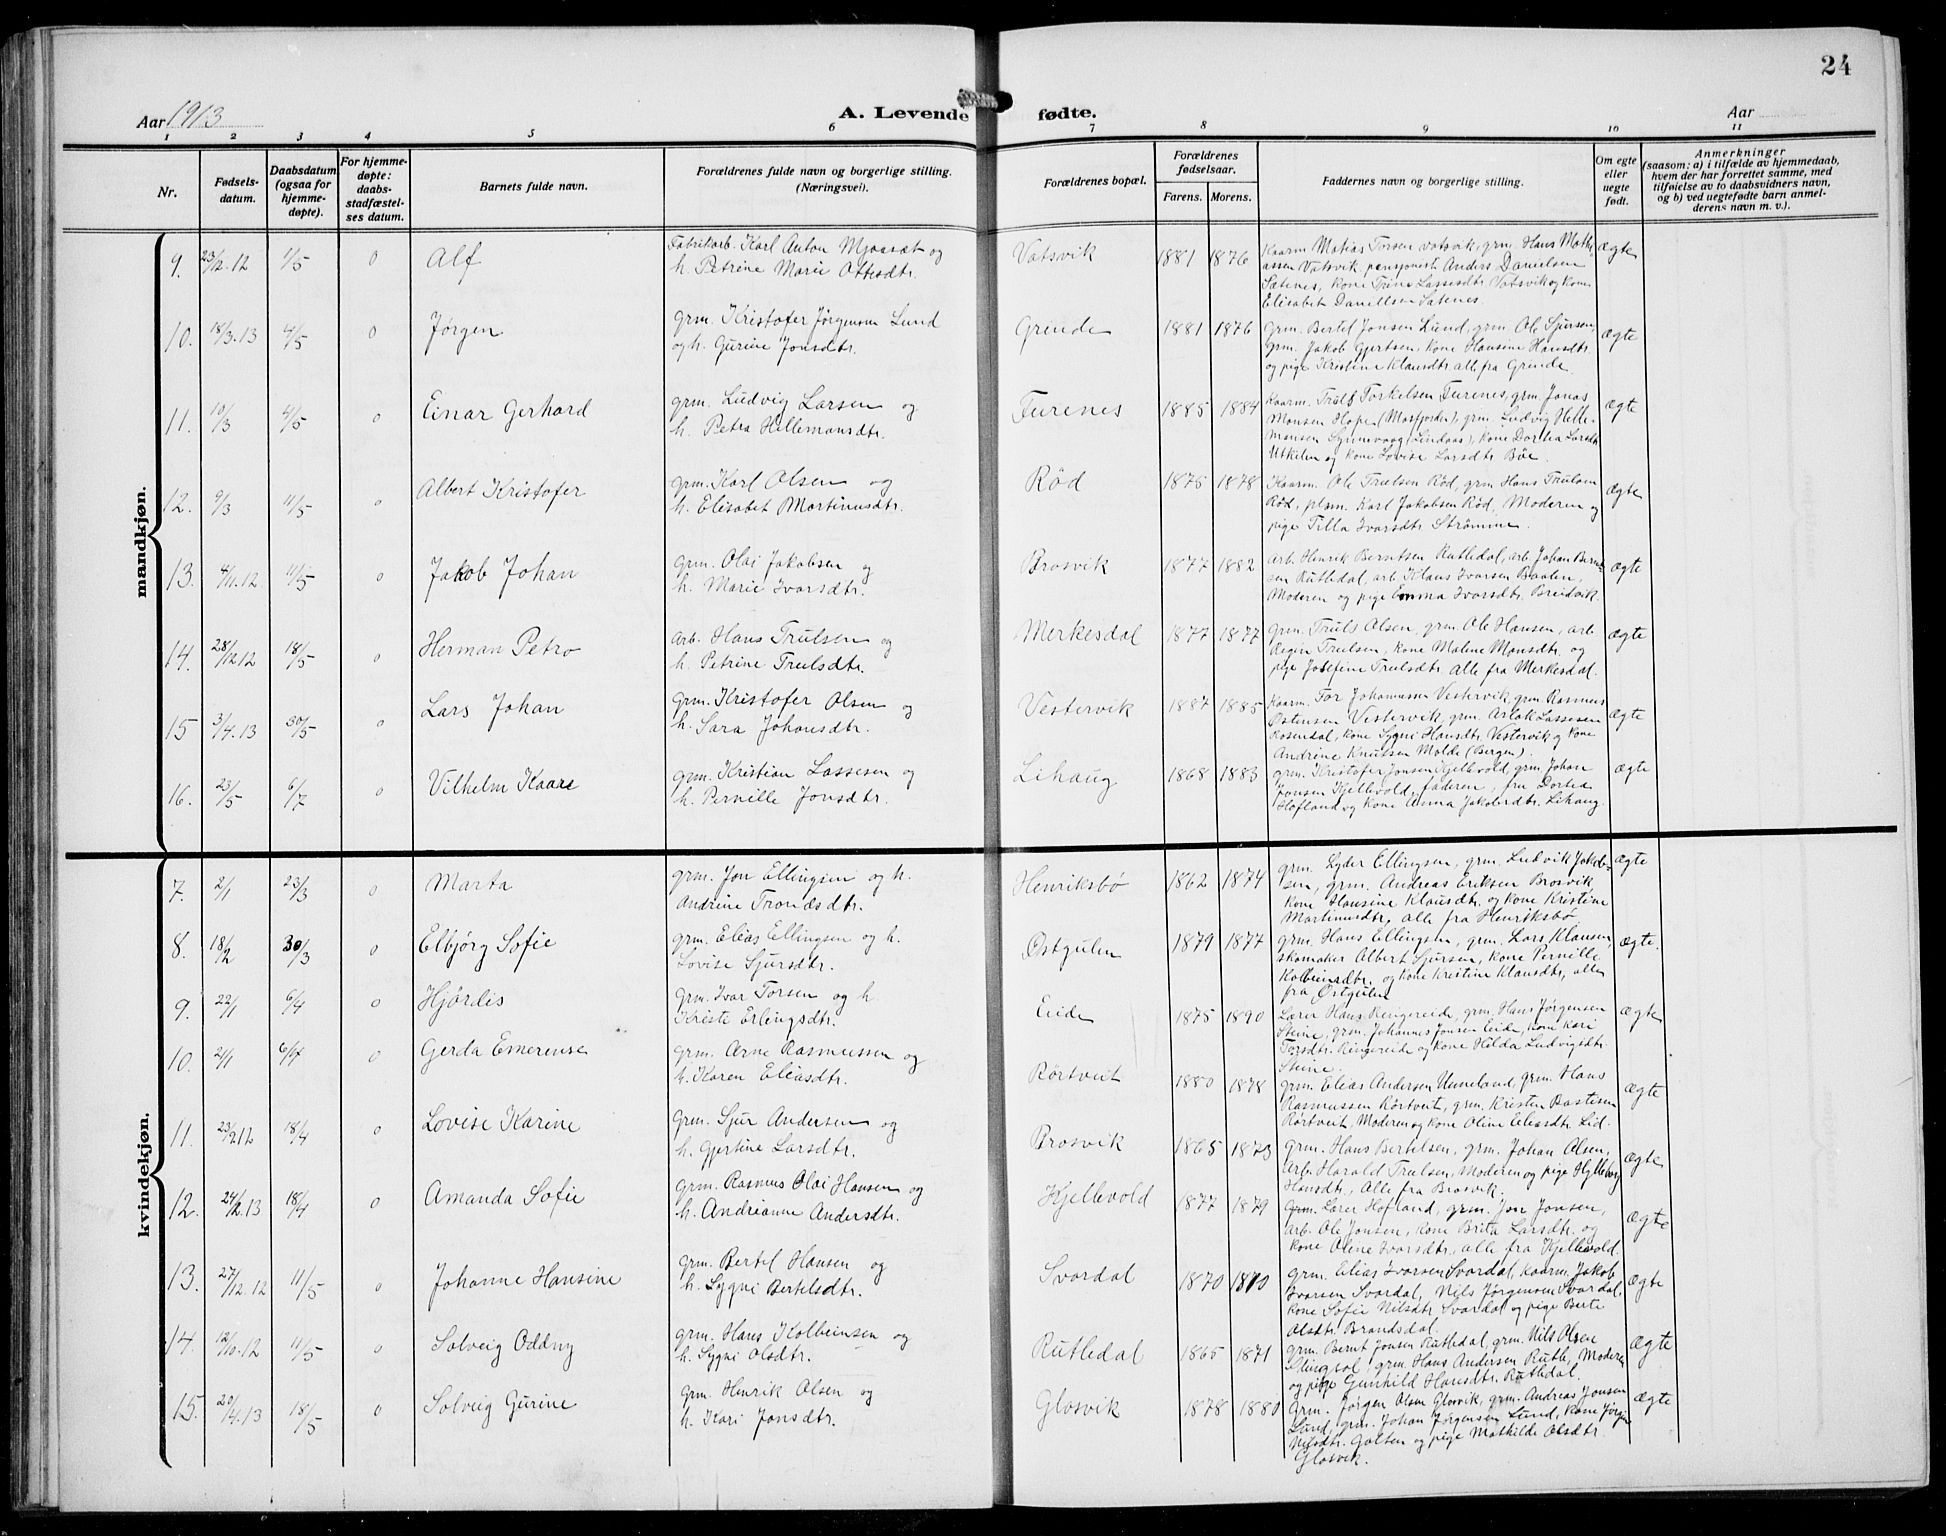 24
Aar 1913
A. Levende fødte.
Aar
1 2 3 4 5 6 7 8 9 10 11
Nr.
Fødsels-
datum.
Daabsdatum
(ogsaa for
hjemme-
døpte).
For hjemme-
døpte:
daabs-
stadfæstel-
ses datum.
Barnets fulde navn.
Forældrenes fulde navn og borgerlige stilling.
(Næringsvei).
Forældrenes bopæl.
Forældrenes
fødselsaar.
Farens. Morens.
Faddernes navn og borgerlige stilling.
Om egte
eller
uegte
født.
Anmerkninger
(saasom: a) i tilfælde av hjemmedaab,
hvem der har forrettet samme, med
tilføielse av to daabsvidners navn,
og b) ved uegtefødte barn anmel-
derens navn m. v.).
mandkjøn.
9. 23/12.12 1/5 0 Alf
Fabrikarb. Karl Anton Mjøsæt og
h. Petrine Marie Ottesdtr.
Vatsvik 1881 1876
Kaarm. Matias Torsen Vatsvik, grm. Hans Math-
assen Vatsvik, pensjonist Anders Danielsen
Satenes, kone Trine Lassesdtr. Vatsvik og kone
Elisabet Danielsen Satenes.
ægte
10. 18/3.13 4/5 0 Jørgen
grm. Kristofer Jørgensen Lund
og h. Gurine Jonsdtr.
Grinde 1881 1876
grm. Bertel Jonsen Lund, grm. Ole Sjursen,
grm. Jakob Gjertsen, kone Hansine Hansdtr
og pige Kristine Klausdtr. alle fra Grinde.
ægte
11. 10/3 4/5 0 Einar Gerhard
grm. Ludvig Larsen og
h. Petra Hillemansdtr.
Furenes 1885 1884
Kaarm. Truls Torkelsen Furenes, grm. Jonas
Monsen Hope (Masfjorden), grm. Ludvig Helle-
mansen Synnevaag (Lindaas), kone Dortea Larsdtr
Utkilen og kone Lovise Larsdtr Böe.
ægte
12. 9/3 4/5 0 Albert Kristofer
grm. Karl Olsen og
h. Elisabet Martinusdtr.
Rød 1875 1878
Kaarm. Ole Trulsen Rød, grm Hans Trulsen
Rød, plsm. Karl Jakobsen Rød, Moderen og
pige Tilla Ivarsdtr. Strömme.
ægte
13. 4/11.12 11/5 0 Jakob Johan
grm. Olai Jakobsen og
h. Marie Ivarsdtr.
Brosvik 1877 1882
arb. Henrik Berntsen Rutledal, arb. Johan Bernt-
sen Rutledal, arb Klaus Ivarsen Baalen,
Moderen og pige Emma Ivarsdtr. Breidvik.
ægte
14. 28/12.12 18/5 0 Herman Petro
arb. Hans Trulsen og
h. Petrine Trulsdtr.
Merkesdal 1877 1877
grm. Truls Olsen, grm. Ole Hansen, arb.
Regin Trulsen, kone Malene Monsdtr. og
pige Josefine Trulsdtr. Alle fra Merkesdal.
ægte
15 3/4.13 30/5 0 Lars Johan
grm. Kristofer Olsen og
h. Sara Johansdtr.
Vestervik 1887 1885
Kaarm. Tor Johannessen Vestervik, grm. Rasmus
Ostensen Vestervik, grm. Aslak Lassesen
Rosendal, kone Sygni Hansdtr. Vestervik og kone
Andrine Knutsen Molde (Bergen).
ægte
16. 23/5 6/7 0 Vilhelm Kaare
grm. Kristian Lassesen og
h. Pernille Jonsdtr.
Lihaug 1868 1883
grm. Kristofer Jonsen Kjellevold, grm. Johan
Jonsen Kjellevold, faderen, fru Dortea
Hofland og kone Anna Jakobsdtr. Lihaug.
ægte
kvindekjøn.
7. 2/1 23/3 0 Marta
grm. Jon Ellingsen og h.
Andrine Trondsdtr.
Henriksbø 1862 1874
grm. Lyder Ellingsen, grm. Ludvik Jakob-
sen, grm. Andreas Eriksen Brosvik,
kone Hansine Klausdtr. og kone Kristine
Martinusdtr. alle fra Henriksbø.
ægte
8. 18/2 30/3 0 Elbjørg Sofie
grm. Elias Ellingsen og h.
Lovise Sjursdtr.
Østgulen 1879 1877
grm. Hans Ellingsen, grm. Lars Klausen,
skomaker Albert Sjursen, kone Pernille
Kolbeinsdtr. og kone Kristine Klausdtr, alle
fra Østgulen
ægte.
9. 22/1 6/4 0 Hjørdis
grm. Ivar Torsen og h.
Kriste Erlingsdtr.
Eide 1875 1890
Lærer Hans Ringereide, grm. Hans Jørgensen
Steine, grm. Johannes Jonsen Eide, kone Kari
Torsdtr. Ringereide og kone Hilda Ludvigsdtr.
Steine.
ægte
10. 2/1 6/4 0 Gerda Emerense
grm. Arne Rasmussen og
h. Karen Eliasdtr.
Rörtveit 1880 1878
grm. Elias Andersen Unneland, grm. Hans
Rasmussen Rörtveit, grm. Kristen Bastesen
Rörtveit, Moderen og kone Oline Eliasdtr. Lid.
ægte
11. 23/2 12 18/4 0 Lovise Karine
grm. Sjur Andersen og
h. Gjertine Larsdtr.
Brosvik 1865 1873
grm. Hans Bertelsen, grm. Johan Olsen,
arb. Harald Trulsen, Moderen og pige Hylleborg
Hansdtr., Alle fra Brosvik.
ægte
12. 24/2.13 18/4 0 Amanda Sofie
grm. Rasmus Olai Hansen og
h. Andrianne Andersdtr.
Kjellevold 1877 1879
grm. Lærer Hofland, grm. Jon Jonsen,
arb. Ole Jonsen, kone Brita Larsdtr. og
kone Olene Ivarsdtr., alle fra Kjellevold.
ægte
13. 27/12.12 11/5 0 Johanne Hansine
grm. Bertel Hansen og
h. Sygni Bertelsdtr.
Svardal 1870 1870
grm. Elias Ivarsen Svardal, Kaarm. Jakob
Ivarsen Svardal, Nils Jørgensen Svardal,
kone Sofie Nilsdtr. Svardal og pige Berte
Olsdtr. Brandsdal.
ægte
14. 12/10.12 11/5 0 Solveig Oddny
grm. Hans Kolbeinsen og
h. Sygni Olsdtr.
Rutledal 1865 1871
grm. Bernt Jonsen Rutledal, grm. Nils Olsen
grm. Hans Andersen Rutle, Moderen
og pige Gunhild Hansdtr. Rutledal.
ægte
15. 20/4.13 18/5 0 Solveig Gurine
grm. Henrik Olsen og
h. Kari Jonsdtr.
Glosvik 1878 1880
grm. Jörgen Olsen Glosvik, grm. Andreas Jonsen
Lund, grm. Johan Jørgensen Lund, kone Jørgine
Nilsdtr. Galten og pige Mathilde Olsdtr
Glosvik.
ægte